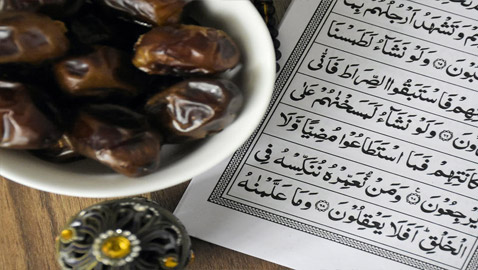 وَتَشْهَدُ اَرْجُلُهُمْ بِمَا
وَلَوْ نَشَآءُ لَطَمَسْنَا
فَاسْتَبَقُوا الصِّرَاطَ فَاَنّٰى
وَلَوْ نَشَآءُ لَمَسَخْنٰهُمْ عَلٰى
مَكَانَتِهِمْ فَمَا اسْتَطَاعُوْا مُضِيًّا وَّلَا
يَرْجِعُوْنَ ۝ وَمَنْ نُّعَمِّرْهُ نُنَكِّسْهُ فِى
الْخَلْقِ ؕ اَفَلَا يَعْقِلُوْنَ ۝ وَمَا عَلَّمْنٰهُ